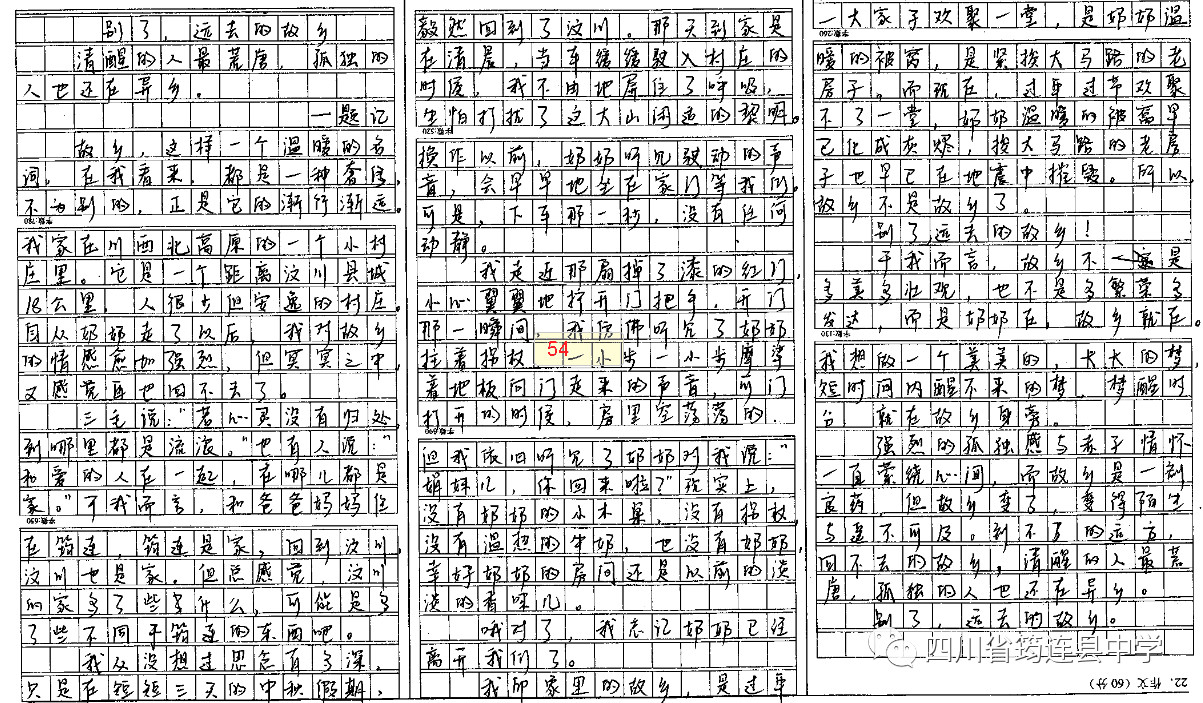 别了，远去的故乡
清醒的人最荒唐，孤独的
人也还在异乡。
——题记
故乡，这样一个温暖的名
词，在我看来，都是一种奢侈，
不为别的，正是它的渐行渐远。
我家在川西北高原的一个小村
庄里。它是一个距离汶川县城
18公里，人很少但安逸的村庄。
自从奶奶走了以后，我对故乡
的情感愈加强烈，但冥冥之中
又感觉再也回不去了。
三毛说：“若心灵没有归处，
到哪里都是流浪。”也有人说：“
和爱的人在一起，在哪儿都是
家。”于我而言，和爸爸妈妈住
在筠连，筠连是家，回到汶川，
汶川也是家。但总感觉，汶川
的家多了些什么，可能是多
了些不同于筠连的东西吧。
我从没想过思念有多深，
只是在短短三天的中秋假期，
毅然回到了汶川。那天到家是
在清晨，当车缓缓驶入村庄的
时候，我不由地屏住了呼吸，
生怕打扰了这大山闲适的黎明。
换作以前，奶奶听见驶动的声
音，会早早地坐在家门等我们。
可是，下车那一秒，没有任何
动静。
我走近那扇掉了漆的红门，
小心翼翼地拧开门把手，开门
那一瞬间，我仿佛听见了奶奶
拄着拐杖，一小步一小步摩挲
着地板向门走来的声音，可门
打开的时候，房里空荡荡的。
但我依旧听见了奶奶对我说：“
娟妹儿，你回来啦？”现实上，
没有奶奶的小木凳，没有拐杖，
没有温热的牛奶，也没有奶奶，
幸好奶奶的房间还是以前的淡
淡的香味儿。
哦对了，我忘记奶奶已经
离开我们了。
我印象里的故乡，是过年
一大家子欢聚一堂，是奶奶温
暖的被窝，是紧挨大马路的老
房子。而现在，过年过节欢聚
不了一堂，奶奶温暖的被窝早
已化成灰烬，挨大马路的老房
子也早已在地震中摧毁。所以，
故乡不是故乡了。
别了，远去的故乡！
于我而言，故乡不是
多美多壮观，也不是多繁荣多
发达，而是奶奶在，故乡就在。
我想做一个美美的，大大的梦，
短时间内醒不来的梦，梦醒时
分，就在故乡身旁。
强烈的孤独感与赤子情怀
一直萦绕心间，而故乡是一剂
良药，但故乡变了，变得陌生
与遥不可及。到不了的远方，
回不去的故乡，清醒的人最荒
唐，孤独的人也还在异乡。
别了，远去的故乡。
54
四川省筠连县中学
22．作文（60分）